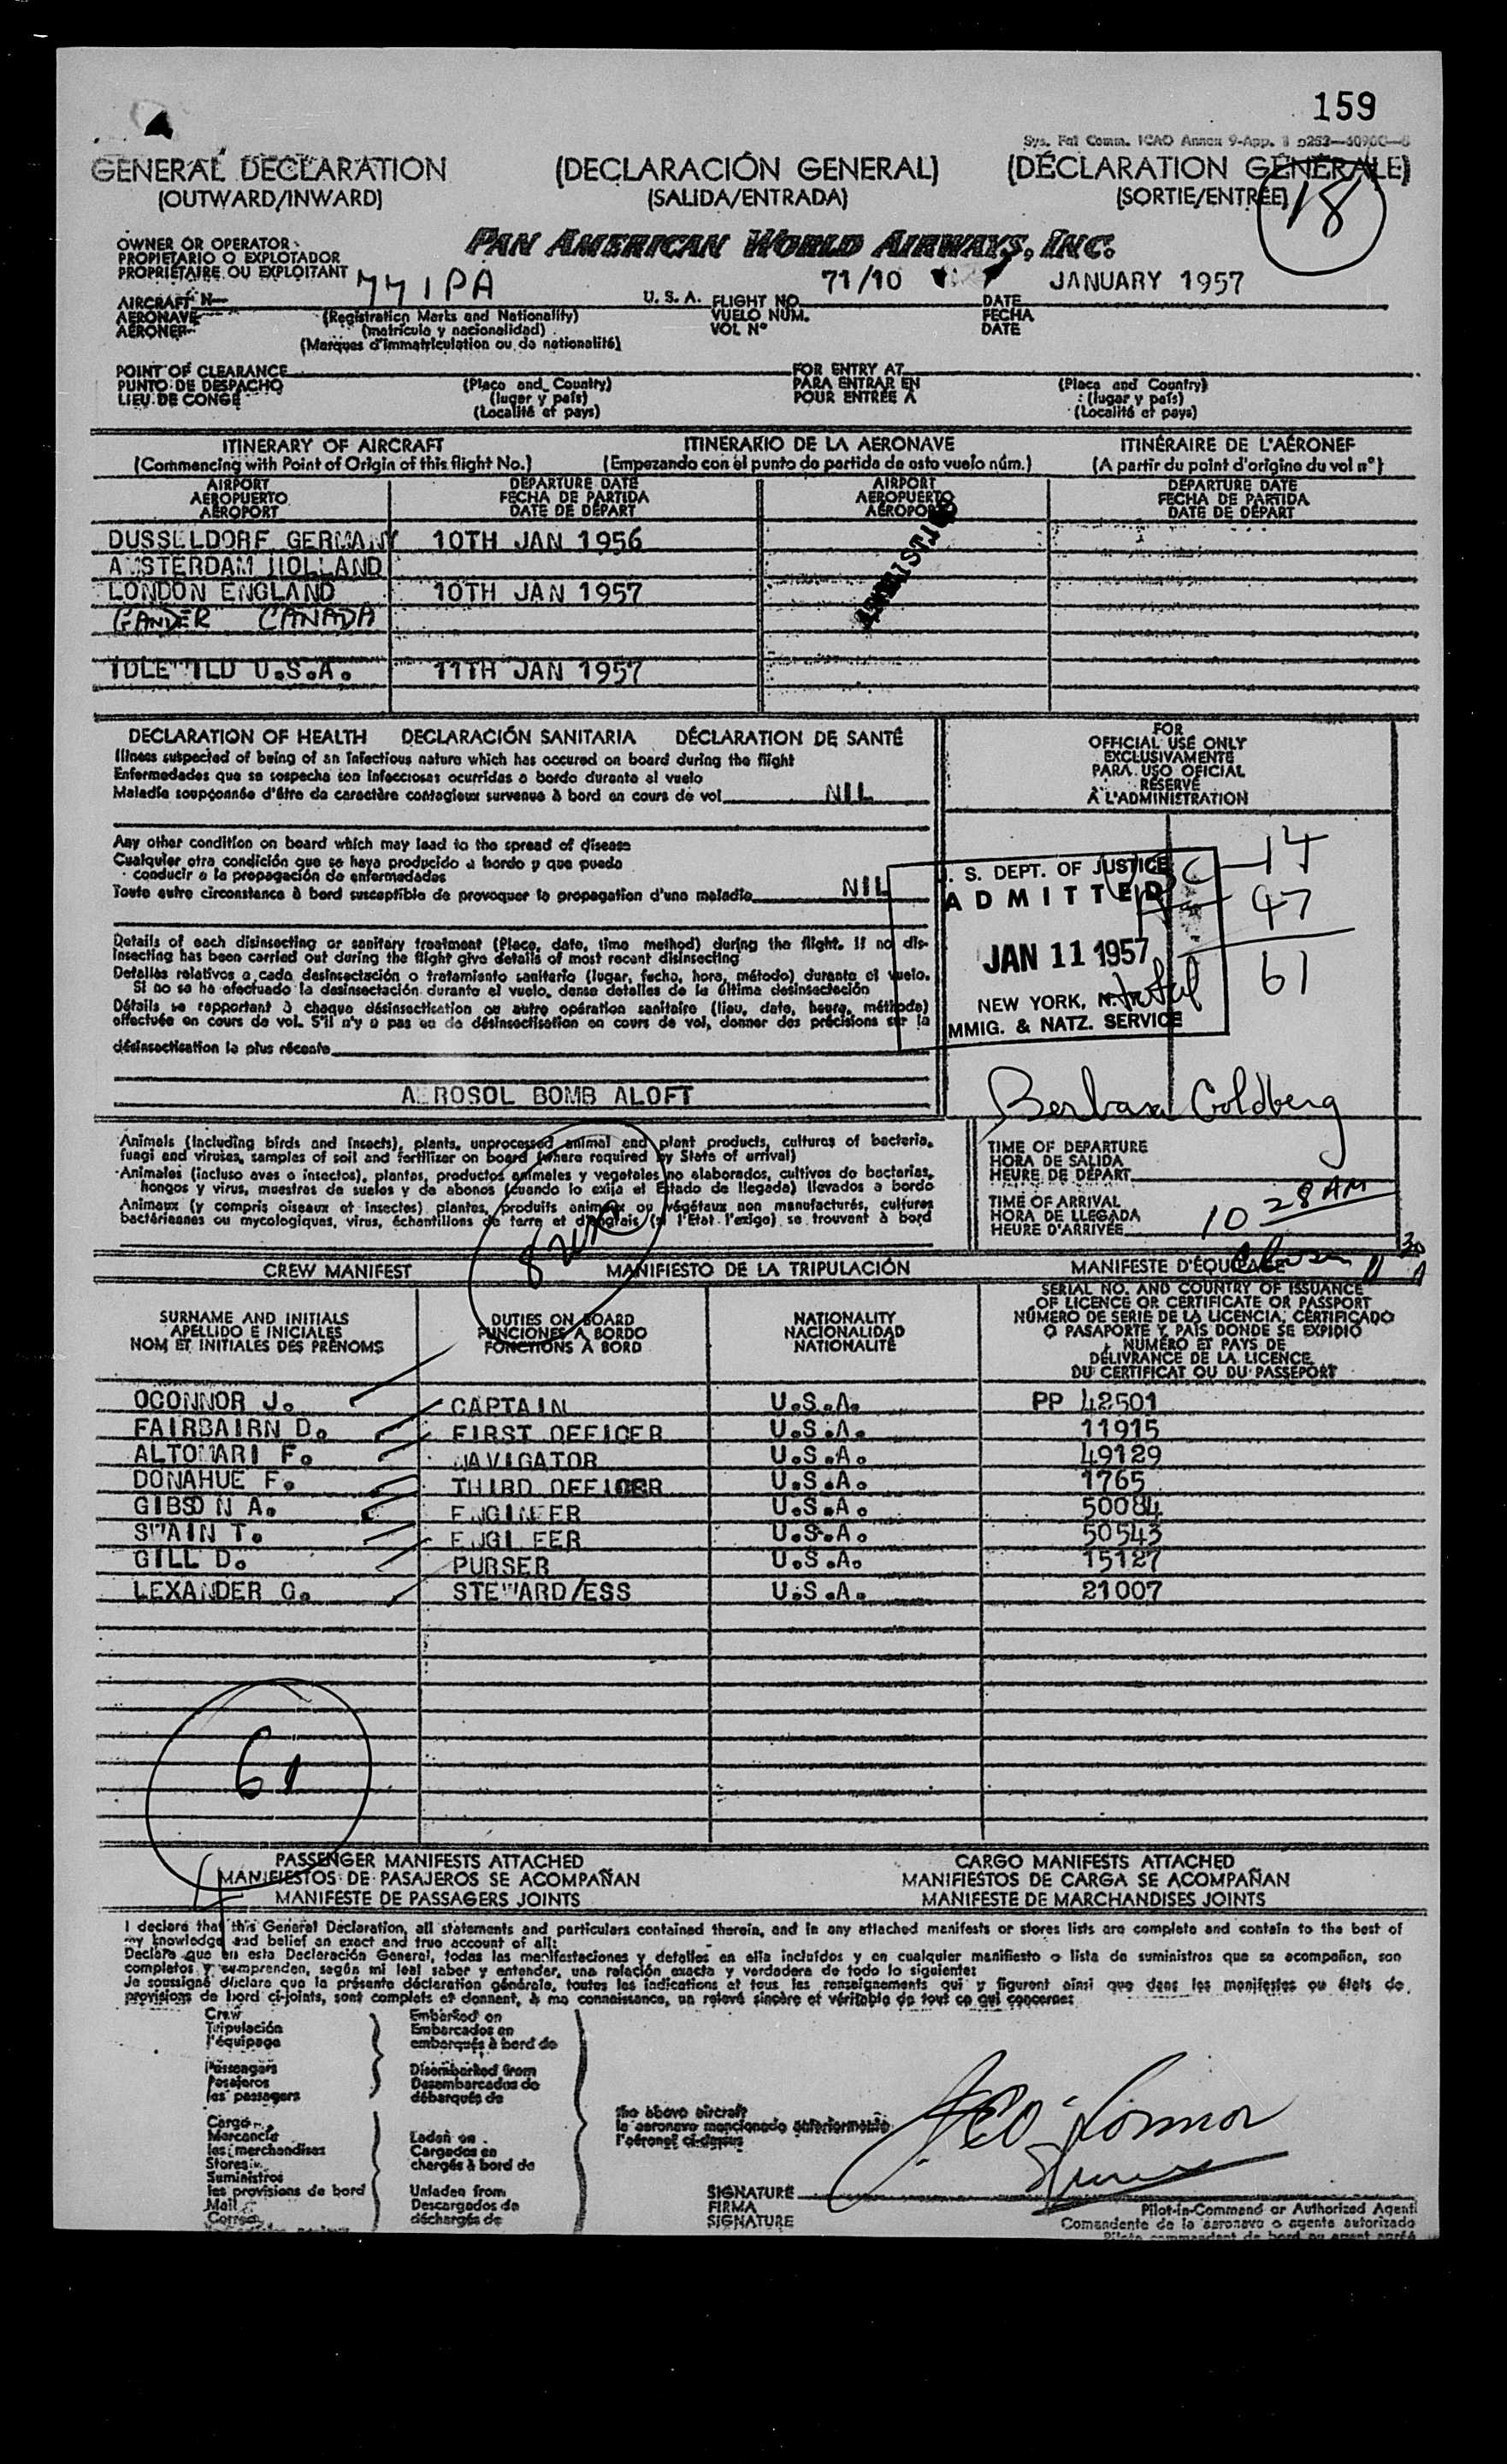 159
Sys. Fal Comm. ICAO Annex 9-App.
GENERAL DECLARATION (DECLARACIÓN GENERAL) (DÉCLARATION GÉNÉRALE)
(OUTWARD/INWARD) (SALIDA/ENTRADA) (SORTIE/ENTRÉE)
18
OWNER OR OPERATOR
PROPIETARIO O EXPLOTADOR
PROPRIÉTAIRE OU EXPLOITANT
PAN AMERICAN WORLD AIRWAYS, INC.
71/10 JANUARY 1957
AIRCRAFT N U.S.A. FLIGHT NO. DATE
AERONAVE (Registration Marks and Nationality) VUELO NÚM. FECHA
AÉRONEF (matrícula y nacionalidad) VOL Nº DATE
(Marques d'immatriculation ou de nationalité)
POINT OF CLEARANCE FOR ENTRY AT
PUNTO DE DESPACHO (Place and Country) PARA ENTRAR EN (Place and Country)
LIEU DE CONGÉ (lugar y país) POUR ENTRÉE A (lugar y país)
(Localité et pays) (Localité et pays)
ITINERARY OF AIRCRAFT ITINERARIO DE LA AERONAVE ITINÉRAIRE DE L'AÉRONEF
(Commencing with Point of Origin of this flight No.) (Empezando con el punto de partida de este vuelo núm.) (A partir du point d'origine du vol nº)
AIRPORT DEPARTURE DATE AIRPORT DEPARTURE DATE
AEROPUERTO FECHA DE PARTIDA AEROPUERTO FECHA DE PARTIDA
AÉROPORT DATE DE DÉPART AÉROPORT DATE DE DÉPART
DUSSELDORF GERMANY 10TH JAN 1956
AMSTERDAM HOLLAND
LONDON ENGLAND 10TH JAN 1957
GANDER CANADA
IDLEWILD U.S.A. 11TH JAN 1957
DECLARATION OF HEALTH DECLARACIÓN SANITARIA DÉCLARATION DE SANTÉ
Illness suspected of being of an infectious nature which has occured on board during the flight
Enfermedades que se sospecha son infecciosas ocurridas a bordo durante el vuelo
Maladie soupçonnée d'être de caractère contagieux survenue à bord en cours de vol NIL
FOR
OFFICIAL USE ONLY
EXCLUSIVAMENTE
PARA USO OFICIAL
RÉSERVÉ
À L'ADMINISTRATION
Any other condition on board which may lead to the spread of disease
Cualquier otra condición que se haya producido a bordo y que pueda
conducir a la propagación de enfermedades
Toute autre circonstance à bord susceptible de provoquer la propagation d'une maladie NIL
U. S. DEPT. OF JUSTICE
ADMITTED
JAN 11 1957
NEW YORK, N.Y.
IMMIG. & NATZ. SERVICE
14
47
total 61
Details of each disinsecting or sanitary treatment (Place, date, time method) during the flight. If no dis-
insecting has been carried out during the flight give details of most recent disinsecting
Detalles relativos a cada desinsectación o tratamiento sanitario (lugar, fecha, hora, método) durante el vuelo.
Si no se ha efectuado la desinsectación durante el vuelo, dense detalles de la última desinsectación
Détails se rapportant à chaque désinsectisation ou autre opération sanitaire (lieu, date, heure, méthode)
effectuée en cours de vol. S'il n'y a pas eu de désinsectisation en cours de vol, donner des précisions sur la
désinsectisation la plus récente
AEROSOL BOMB ALOFT
Barbara Goldberg
Animals (including birds and insects), plants, unprocessed animal and plant products, cultures of bacteria,
fungi and viruses, samples of soil and fertilizer on board (where required by State of arrival)
Animales (incluso aves o insectos), plantas, productos animales y vegetales no elaborados, cultivos de bacterias,
hongos y virus, muestras de suelos y de abonos (cuando lo exija el Estado de llegada) llevados a bordo
Animaux (y compris oiseaux et insectes) plantes, produits animaux ou végétaux non manufacturés, cultures
bactériennes ou mycologiques, virus, échantillons de terre et d'engrais (si l'Etat l'exige) se trouvant à bord
TIME OF DEPARTURE
HORA DE SALIDA
HEURE DE DÉPART
TIME OF ARRIVAL
HORA DE LLEGADA
HEURE D'ARRIVÉE 10 28 AM
CREW MANIFEST MANIFIESTO DE LA TRIPULACIÓN MANIFESTE D'ÉQUIPAGE
SURNAME AND INITIALS
APELLIDO E INICIALES
NOM ET INITIALES DES PRÉNOMS
DUTIES ON BOARD
FUNCIONES A BORDO
FONCTIONS A BORD
NATIONALITY
NACIONALIDAD
NATIONALITÉ
SERIAL NO. AND COUNTRY OF ISSUANCE
OF LICENCE OR CERTIFICATE OR PASSPORT
NÚMERO DE SERIE DE LA LICENCIA, CERTIFICADO
O PASAPORTE Y PAÍS DONDE SE EXPIDIÓ
NUMÉRO ET PAYS DE
DÉLIVRANCE DE LA LICENCE,
DU CERTIFICAT OU DU PASSEPORT
OCONNOR J. CAPTAIN U.S.A. PP 42501
FAIRBAIRN D. FIRST OFFICER U.S.A. 11915
ALTOMARI F. NAVIGATOR U.S.A. 49129
DONAHUE F. THIRD OFFICER U.S.A. 1765
GIBSON A. ENGINEER U.S.A. 50084
SWAIN T. ENGINEER U.S.A. 50543
GILL D. PURSER U.S.A. 15127
LEXANDER G. STEWARD/ESS U.S.A. 21007
61
PASSENGER MANIFESTS ATTACHED CARGO MANIFESTS ATTACHED
MANIFIESTOS DE PASAJEROS SE ACOMPAÑAN MANIFIESTOS DE CARGA SE ACOMPAÑAN
MANIFESTE DE PASSAGERS JOINTS MANIFESTE DE MARCHANDISES JOINTS
I declare that this General Declaration, all statements and particulars contained therein, and in any attached manifests or stores lists are complete and contain to the best of
my knowledge and belief an exact and true account of all:
Declaro que en esta Declaración General, todas las manifestaciones y detalles en ella incluídos y en cualquier manifiesto o lista de suministros que se acompañan, son
completos y comprenden, según mi leal saber y entender, una relación exacta y verdadera de todo lo siguiente:
Je soussigné déclare que la présente déclaration générale, toutes les indications et tous les renseignements qui y figurent ainsi que dans les manifestes ou états de
provisions de bord ci-joints, sont complets et donnent, à ma connaissance, un relevé sincère et véritable de tout ce qui concerne:
Crew Embarked on
Tripulación Embarcados en
l'équipage embarqués à bord de
Passengers Disembarked from
Pasajeros Desembarcados de
les passagers débarqués de
the above aircraft
la aeronave mencionada anteriormente
l'aéronef ci-dessus
Cargo
Mercancía Laden on
les merchandises Cargados en
Stores chargés à bord de
Suministros
les provisions de bord Unladen from
Mail Descargados de
Correo déchargés de
SIGNATURE
FIRMA
SIGNATURE
Pilot-in-Command or Authorized Agent
Comandante de la aeronave o agente autorizado
Pilote commandant de bord ou agent agréé